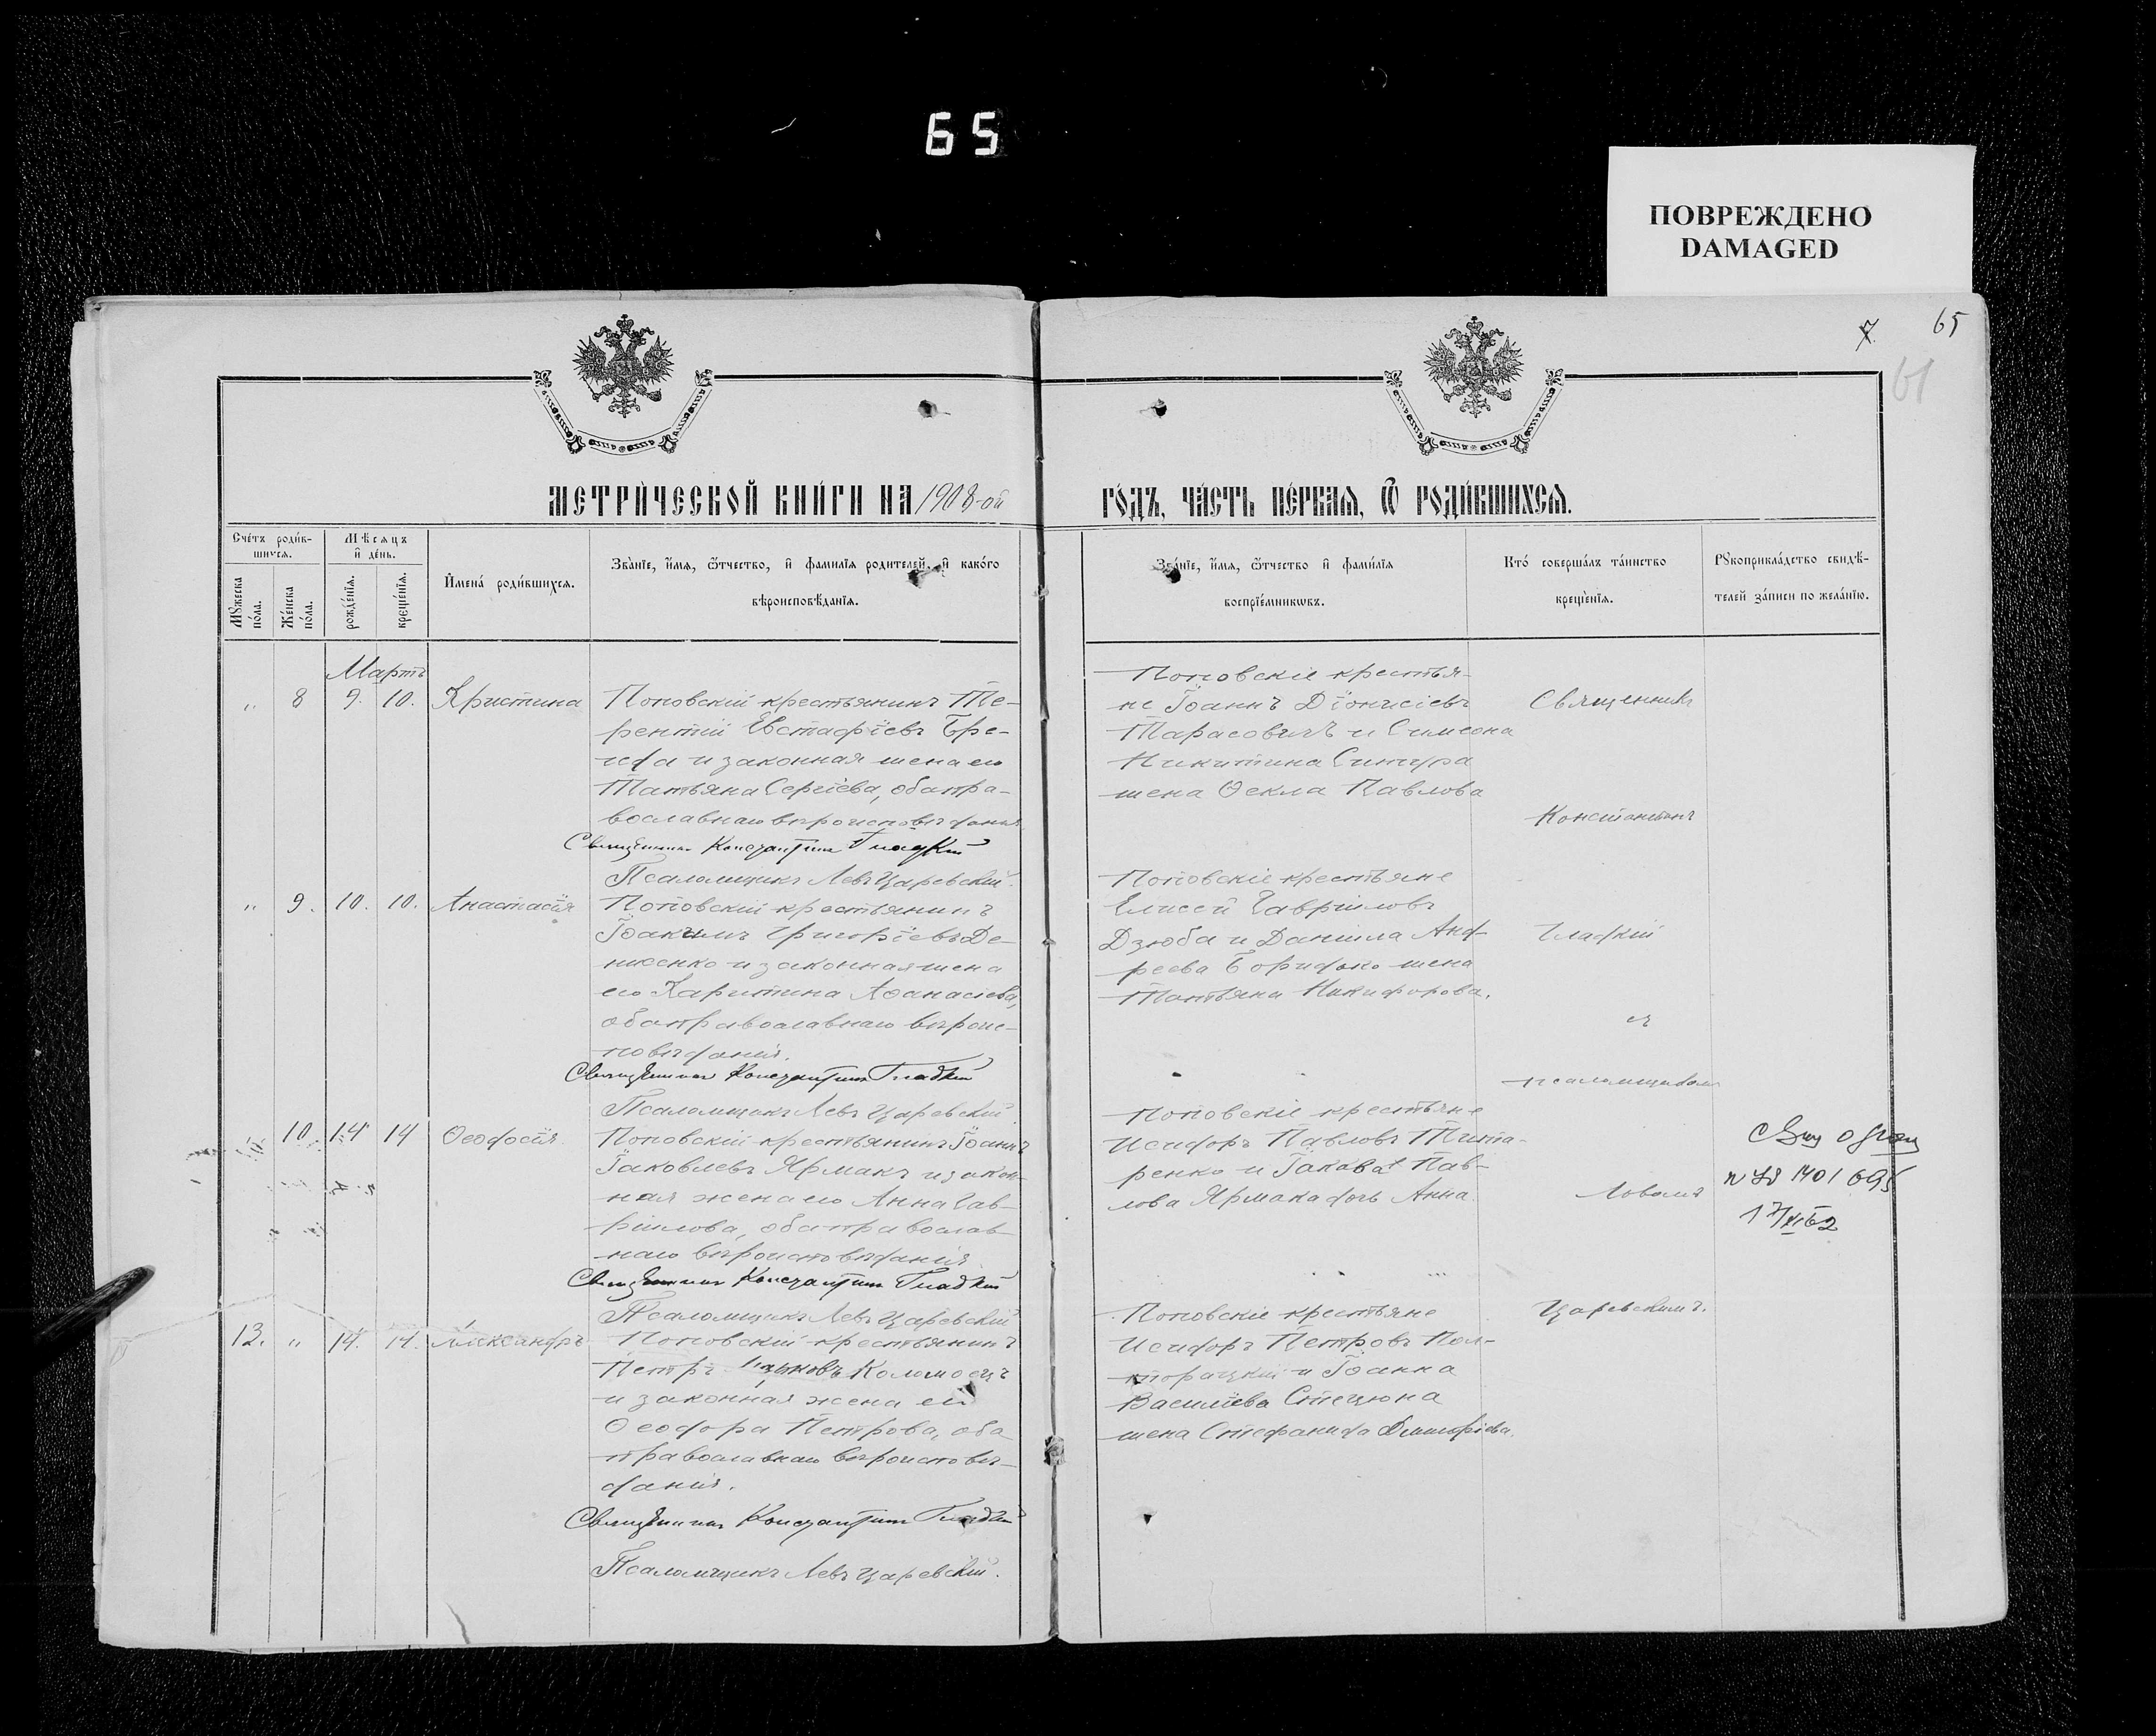 65
ПОВРЕЖДЕНО
DAMAGED
7.
65
61
МЕТРИ́ЧЕСКОЙ КНИ́ГИ НА 1908-ой
ГО́ДЪ, ЧА́СТЬ ПЕ́РВАѦ, Ѿ РОДИ́ВШИХСѦ.
Сче́тъ роди́в-
шихсѧ.
Мꙋ́жеска по́ла.
Же́нска по́ла.
Мѣ́сѧцъ
и҆ де́нь.
рожде́нїѧ.
креще́нїѧ.
И҆мена̀ роди́вшихсѧ.
Зва́нїе, и҆́мѧ, ѻ҆́тчество, и҆ фами́лїѧ роди́телей, и҆ како́гѡ
вѣроисповѣ́данїѧ.
Зва́нїе, и҆́мѧ, ѻ҆́тчество и҆ фами́лїѧ
воспрїе́мникѡвъ.
Кто̀ соверша́лъ та́инство
креще́нїѧ.
Рꙋкоприкла́дство свидѣ́-
телей за́писи по жела́нїю.
Мартъ
" 8 9. 10. Христина
Поповскій крестьянинъ Те-
рентій Евстафіевъ Бре-
и законная жена его
Татьяна Сергіева, оба пра-
вославнаго вѣроисповѣданія.
Священникъ Константинъ Гладкій
Псаломщикъ Левъ Царевскій.
Поповскіе крестья-
не Іоаннъ Діонисіевъ
Тарасовичъ и Симеона
Никитина
жена Ѳекла Павлова
Священникъ
Константинъ
" 9. 10. 10. Анастасія
Поповскій крестьянинъ
Іоакимъ Григоріевъ Де-
и законная жена
его Харитина Аѳанасіева,
оба православнаго вѣроис-
повѣданія.
Священникъ Константинъ Гладкій
Псаломщикъ Левъ Царевскій
Поповскіе крестьяне
Елисей Гавріиловъ
Дзюба и Даніила Анд-
реева жена
Татьяна Никифорова.
Гладкій
съ
псаломщикомъ
10. 14 14 Ѳеодосія
Поповскій крестьянинъ Іоаннъ
Іаковлевъ Ярмакъ и закон-
ная жена его Анна Гав-
ріилова, оба православ-
наго вѣроисповѣданія.
Священникъ Константинъ Гладкій
Псаломщикъ Левъ Царевскій
Поповскіе крестьяне
Исидоръ Павловъ Тита-
ренко и Іакова Пав-
лова Ярмака дочь Анна.
Львомъ
1401695
17/XI 62
13. " 14. 14. Александръ
Поповскій крестьянинъ
Петръ Коломоецъ
и законная жена его
Ѳеодора Петрова, оба
православнаго вѣроисповѣ-
данія.
Священникъ Константинъ Гладкій
Псаломщикъ Левъ Царевскій.
Поповскіе крестьяне
Исидоръ Петровъ Пол-
торацкій и Іоанна
Василіева Стецюна
жена Стефанида Димитріева.
Царевскимъ.